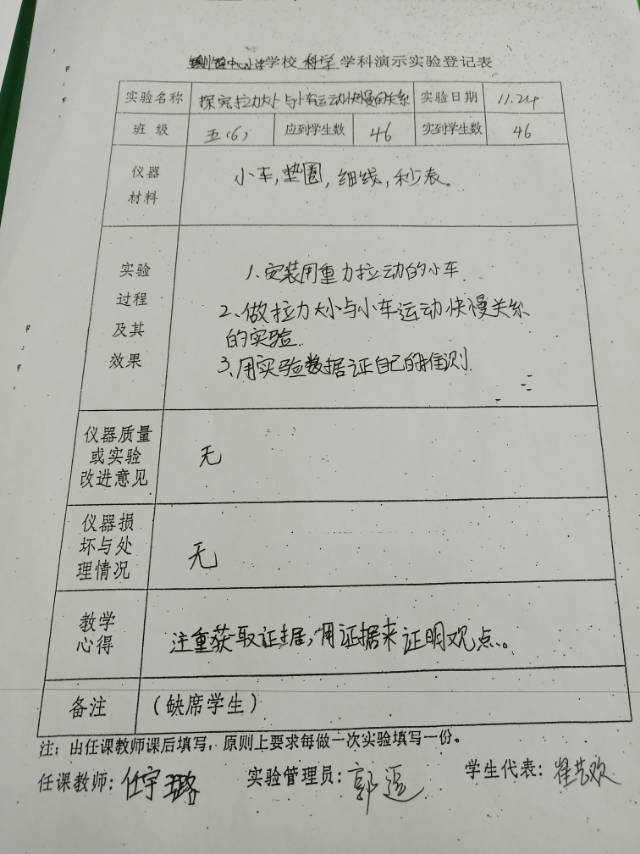 学校 科学 学科演示实验登记表
实验名称 探究拉力大小与小车运动快慢的关系 实验日期 11.24
班 级 五(6) 应到学生数 46 实到学生数 46
仪器
材料
小车,垫圈,细线,秒表。
实验
过程
及其
效果
1、安装用重力拉动的小车
2、做拉力大小与小车运动快慢关系
的实验.
3、用实验数据证自己的推测.
仪器质量
或实验
改进意见
无
仪器损
坏与处
理情况
无
教学
心得
注重获取证据,用证据来证明观点。
备注 (缺席学生)
注：由任课教师课后填写，原则上要求每做一次实验填写一份。
任课教师: 任宇璐 实验管理员: 郭 学生代表: 崔艺欢